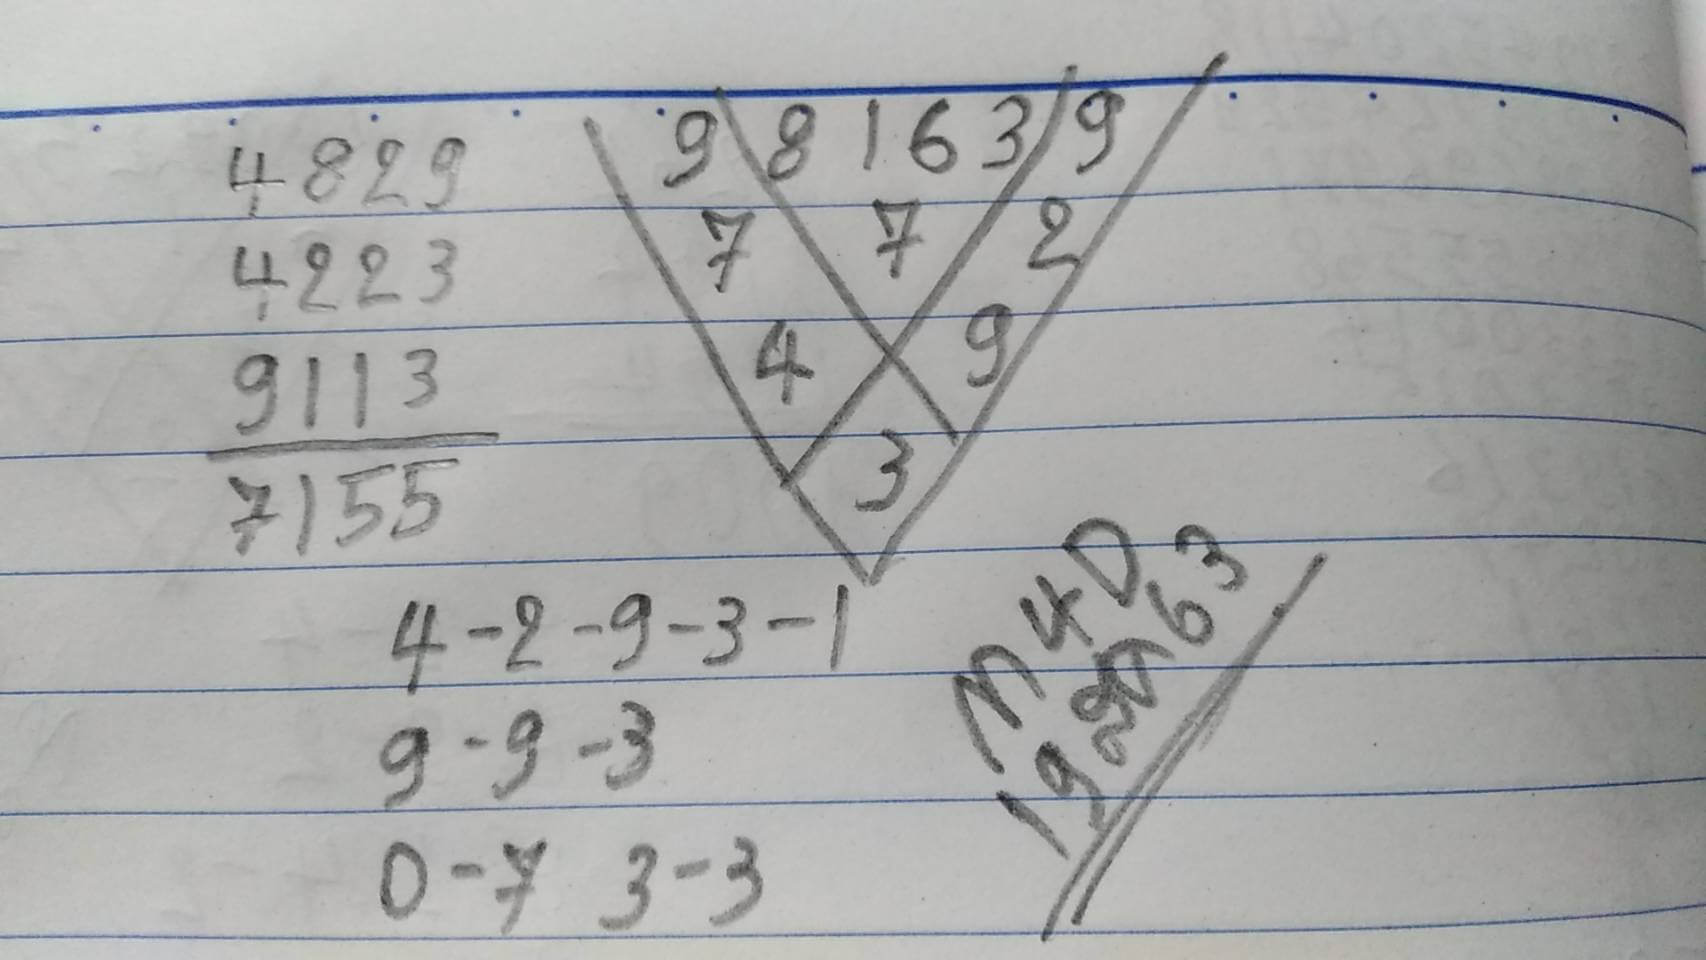 4829
4223
9113
7155
9 8163 9
7 7 2
4 9
3
4-2-9-3-1
9-9-3
0-7 3-3
M4D
19 63